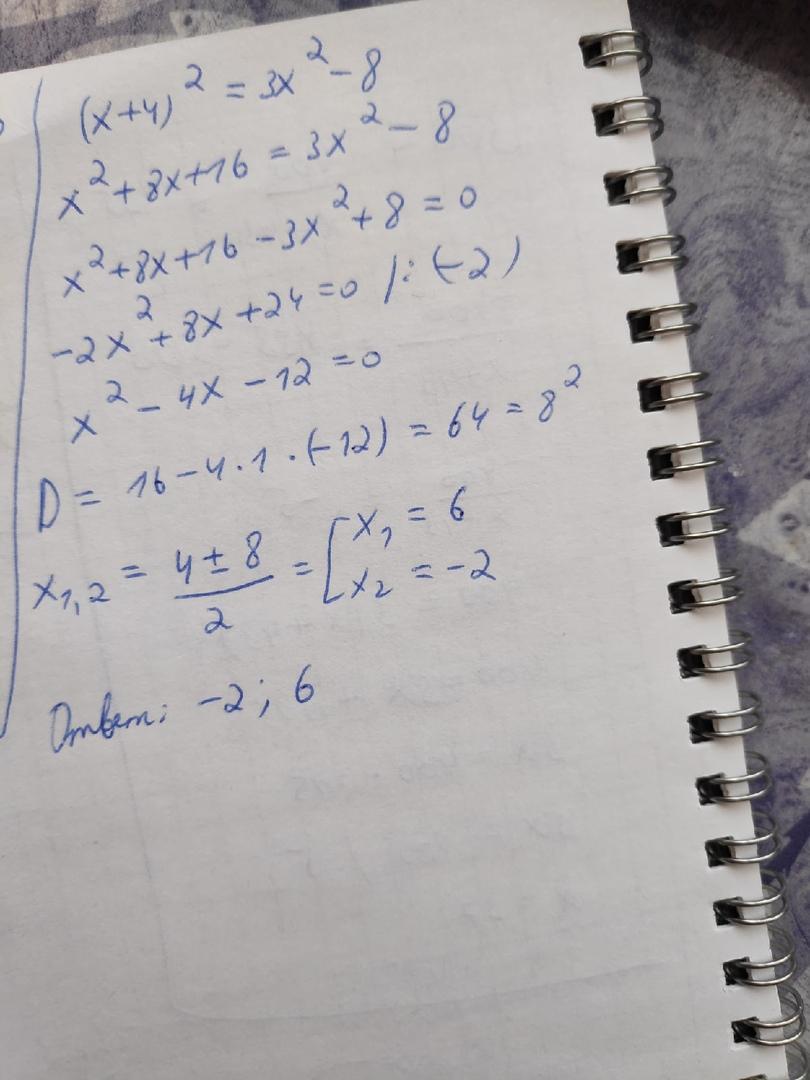 (x+4)² = 3x² - 8
x² + 8x + 16 = 3x² - 8
x² + 8x + 16 - 3x² + 8 = 0
-2x² + 8x + 24 = 0 /: (-2)
x² - 4x - 12 = 0
D = 16 - 4 · 1 · (-12) = 64 = 8²
x₁,₂ = (4 ± 8)/2 = [ x₁ = 6
x₂ = -2
Ответ: -2; 6